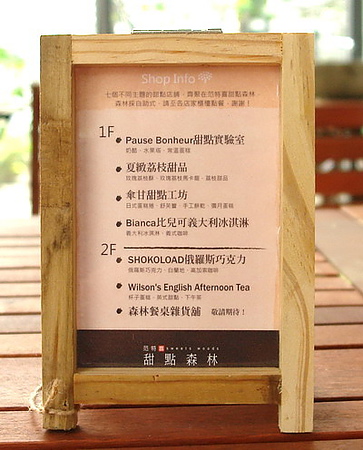 Shop Info
七個不同主題的甜點店舖，齊聚在范特喜甜點森林
森林採自助式，請至各店家櫃檯點餐，謝謝！
1F
Pause Bonheur甜點實驗室
奶酪．水果塔．常溫蛋糕
夏緻荔枝甜品
玫瑰荔枝酥．玫瑰荔枝馬卡龍．荔枝甜品
傘甘甜點工坊
日式蛋糕捲．舒芙蕾．手工餅乾．彌月蛋糕
Bianca比兒可義大利冰淇淋
義大利冰淇淋．義式咖啡
2F
SHOKOLOAD俄羅斯巧克力
俄羅斯巧克力．白蘭地．高加索咖啡
Wilson's English Afternoon Tea
杯子蛋糕．英式甜點．下午茶
森林餐桌雜貨舖 敬請期待！
范特喜 sweets woods
甜點森林